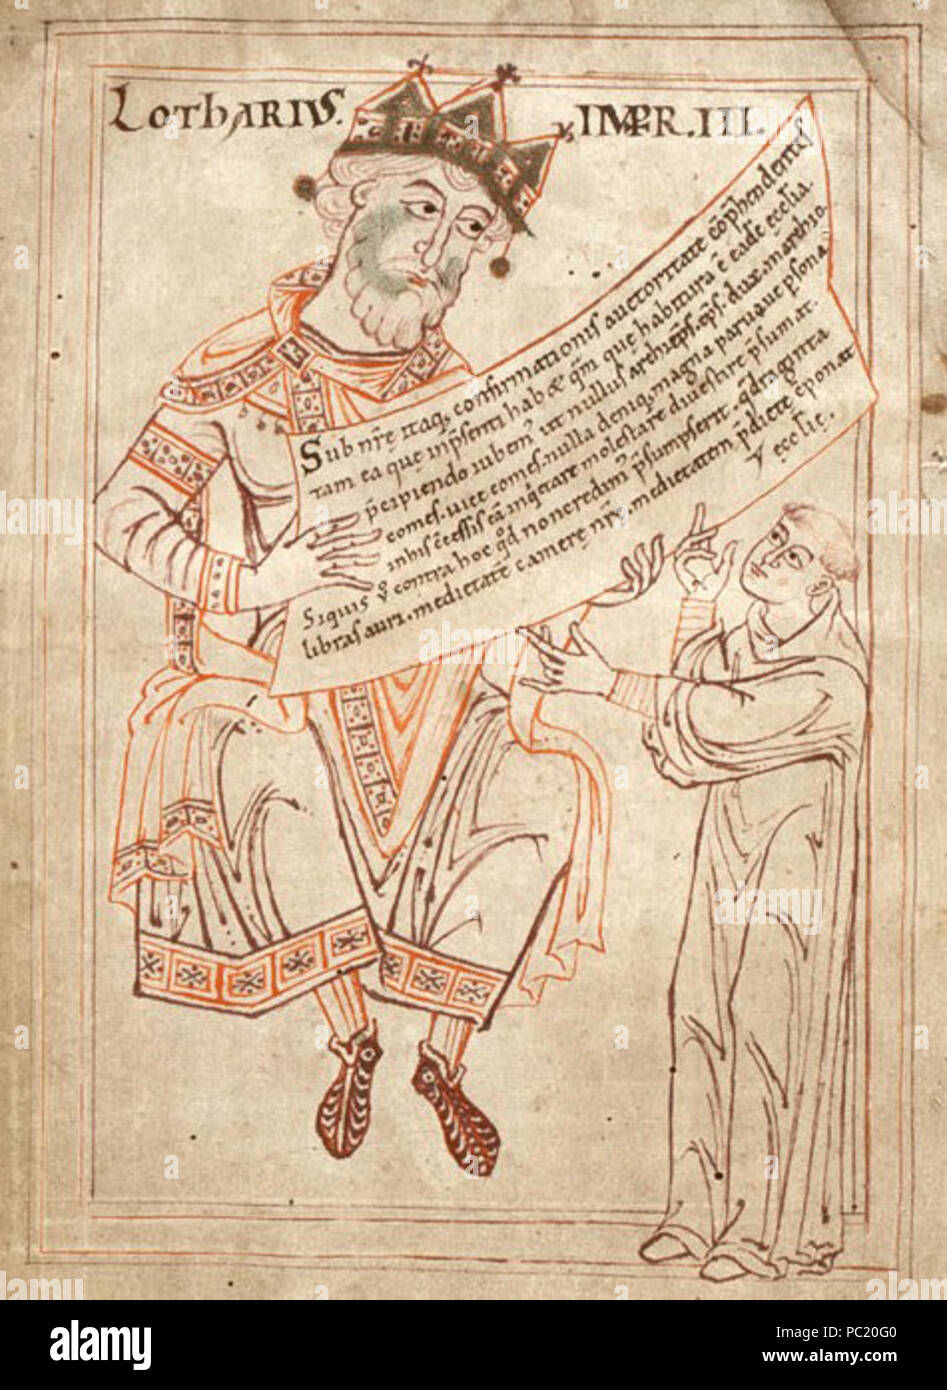 LOTHARIVS. IMPR. III.
Sub nr̄e itaq; confirmationis auctoritate cōp̄hendentes
tam ea que inp̄senti habet q̄m que habitura ē eadē ecclia.
p̄cipiendo iubem' ut nullus archiep̄s. ep̄s. dux. marchio
comes. uicecomes. nulla deniq; magna paruaque p̄sona
inhis c̄cessis eā inq̄etare molestare diuestire p̄sumat.
Siquis ū contra hoc qd̄ non credim' p̄sumpserit. q̄draginta
libras auri. medietatē camerę nr̄ę. medietatem p̄dictę cōponat
ęcclię.
alamy
Image ID: PC20G0
www.alamy.com